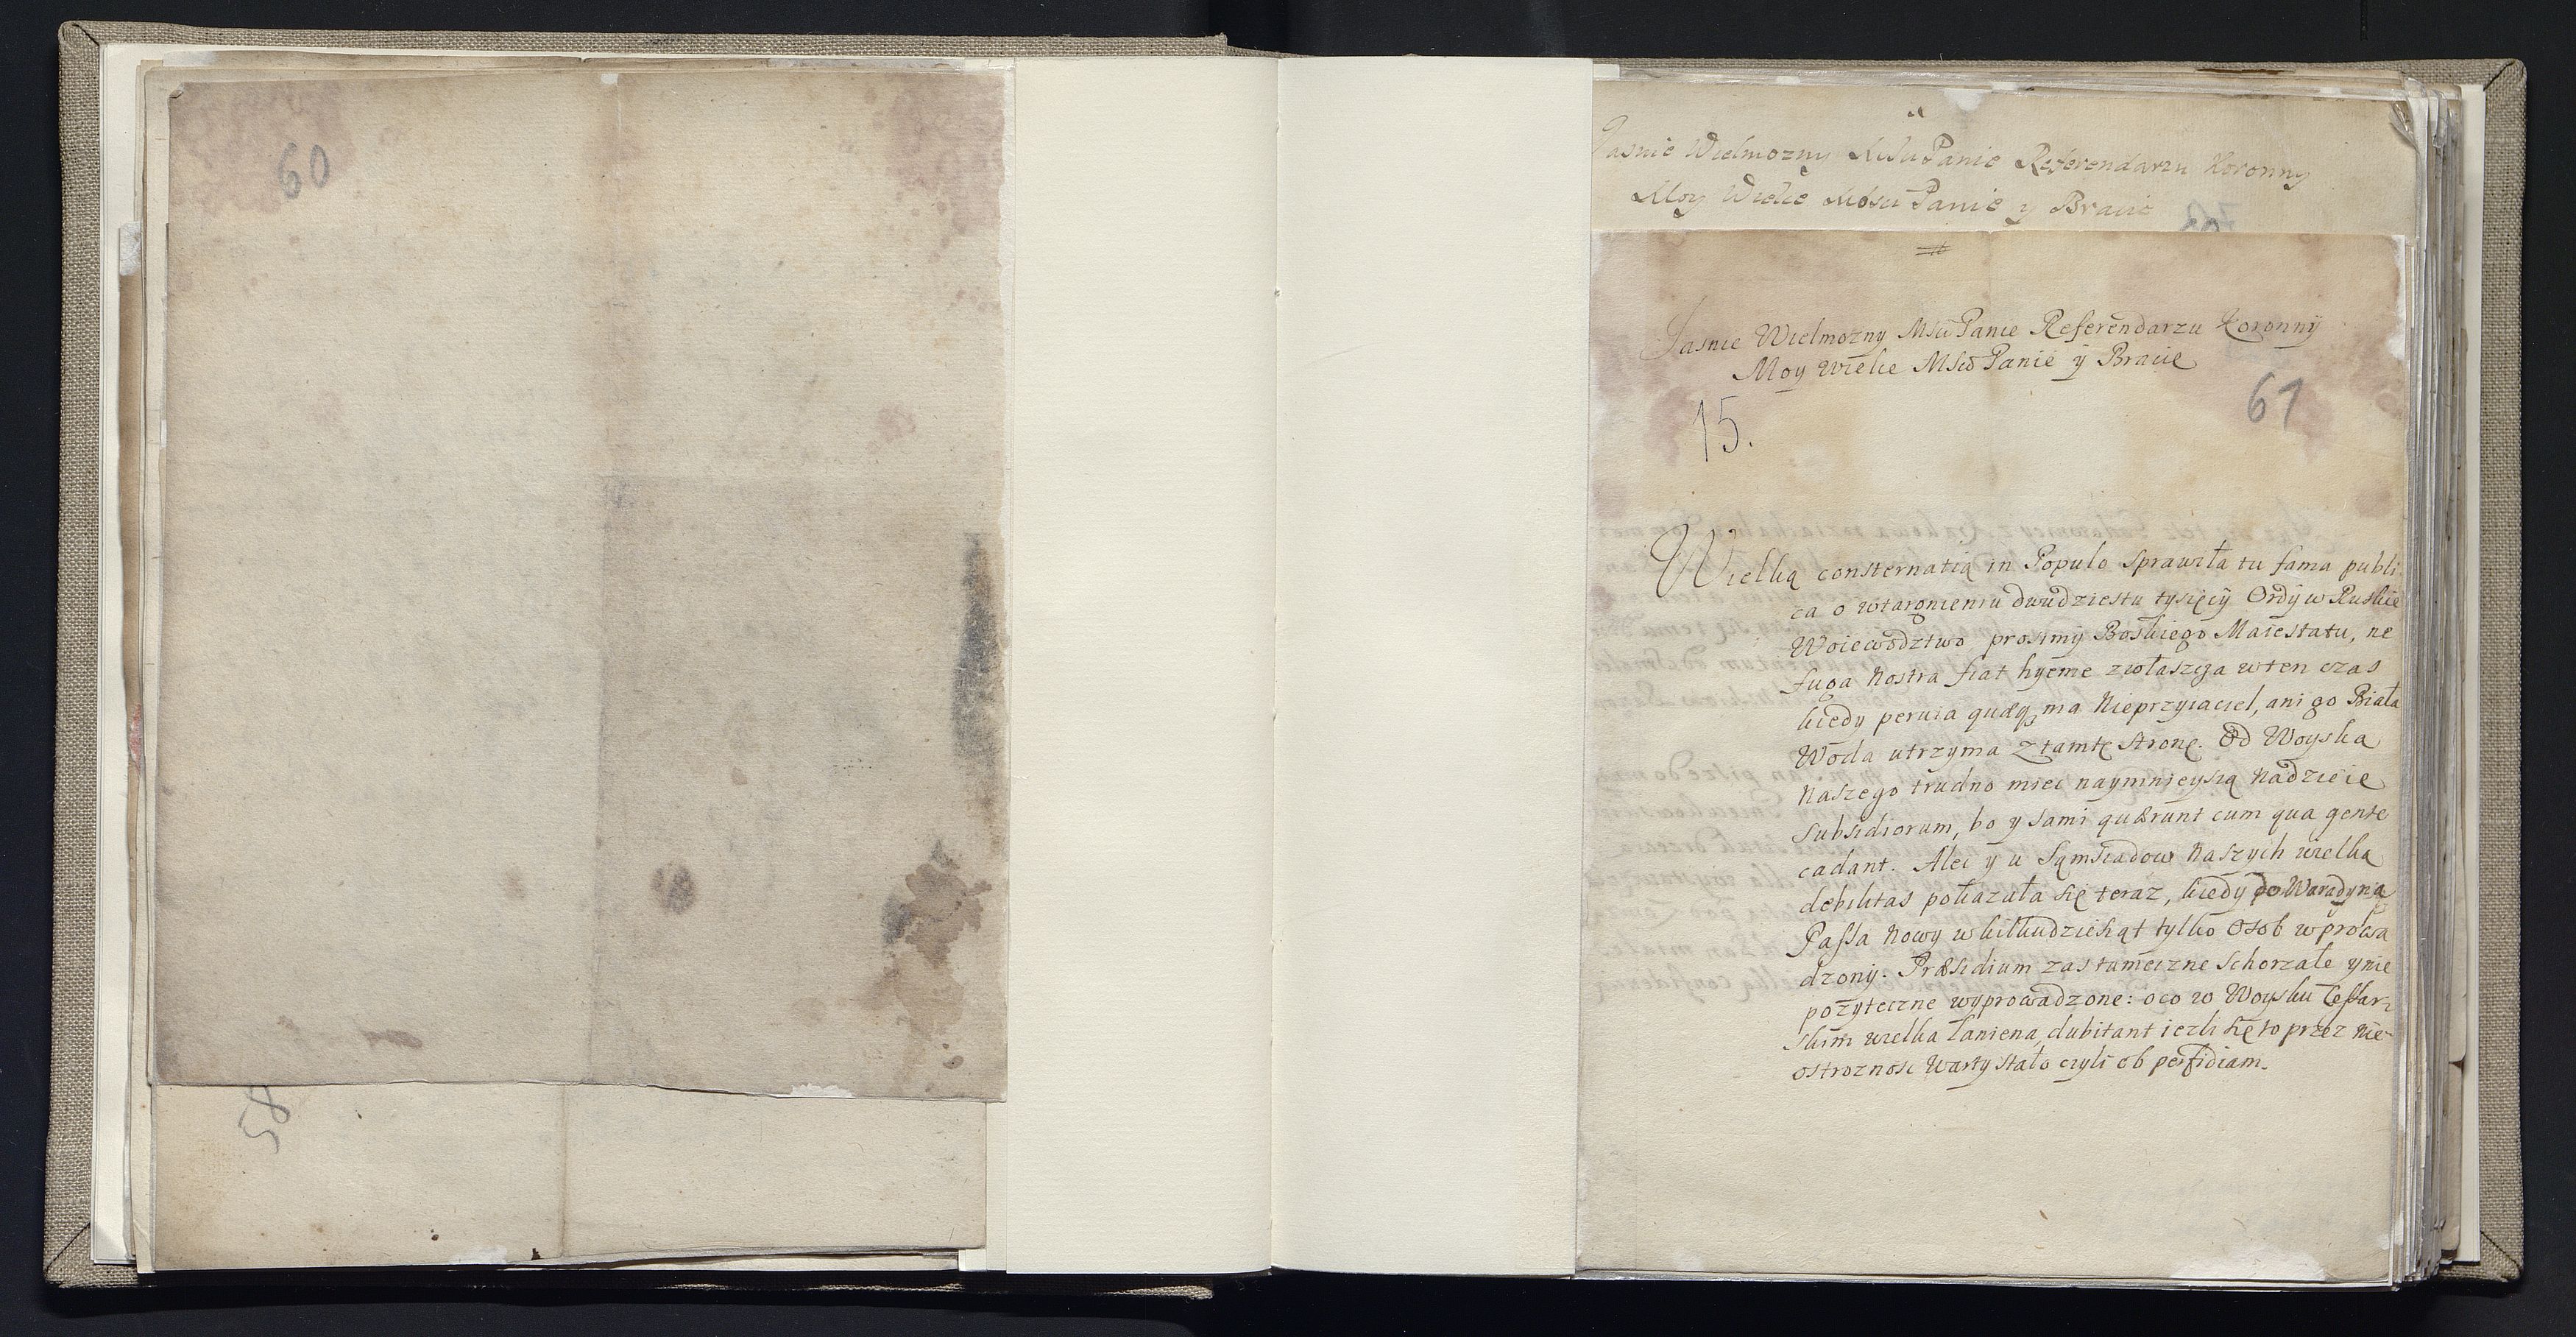 60
58
Jasnie Wielmozny Msĉu Panie Referendarzu Koronny
Moy Wielce Mosci Panie y Bracie
Jasnie Wielmozny Msĉu Panie Referendarzu Koronnÿ
Moy Wielce Mśĉu Panie ÿ Bracie
15.
61
Wielką consternatią in Populo sprawiła tu fama publi
ca o wtargnieniu dwudziestu tysięcÿ Ordÿ w Ruskie
Woiewodztwo prosimÿ Boskiego Maiestatu, ne
fuga Nostra fiat hyeme zwłaszcza w ten czas
kiedy peruia quæq, ma Nieprzyiaciel, ani go Biała
Woda utrzyma z tamtę stronę. Od Woyska
Naszego trudno miec naymnieyszą Nadzieię
subsidiorum, bo y sami quærunt cum qua gente
cadant. Aleć y u Sąmsiadow Naszych wielka
debilitas pokazała się teraz, kiedy do Waradyna
Passa Nowy w kilkudziesiąt tylko Osob wprowa
dzonÿ. Præsidium zas tameczne schorzałe y nie
pozyteczne wyprowadzone: oco w Woysku Cessar-
skim wielka łaniena, dubitant iezli się to przez nie-
ostroznosc Warty stało czyli ob perfidiam.